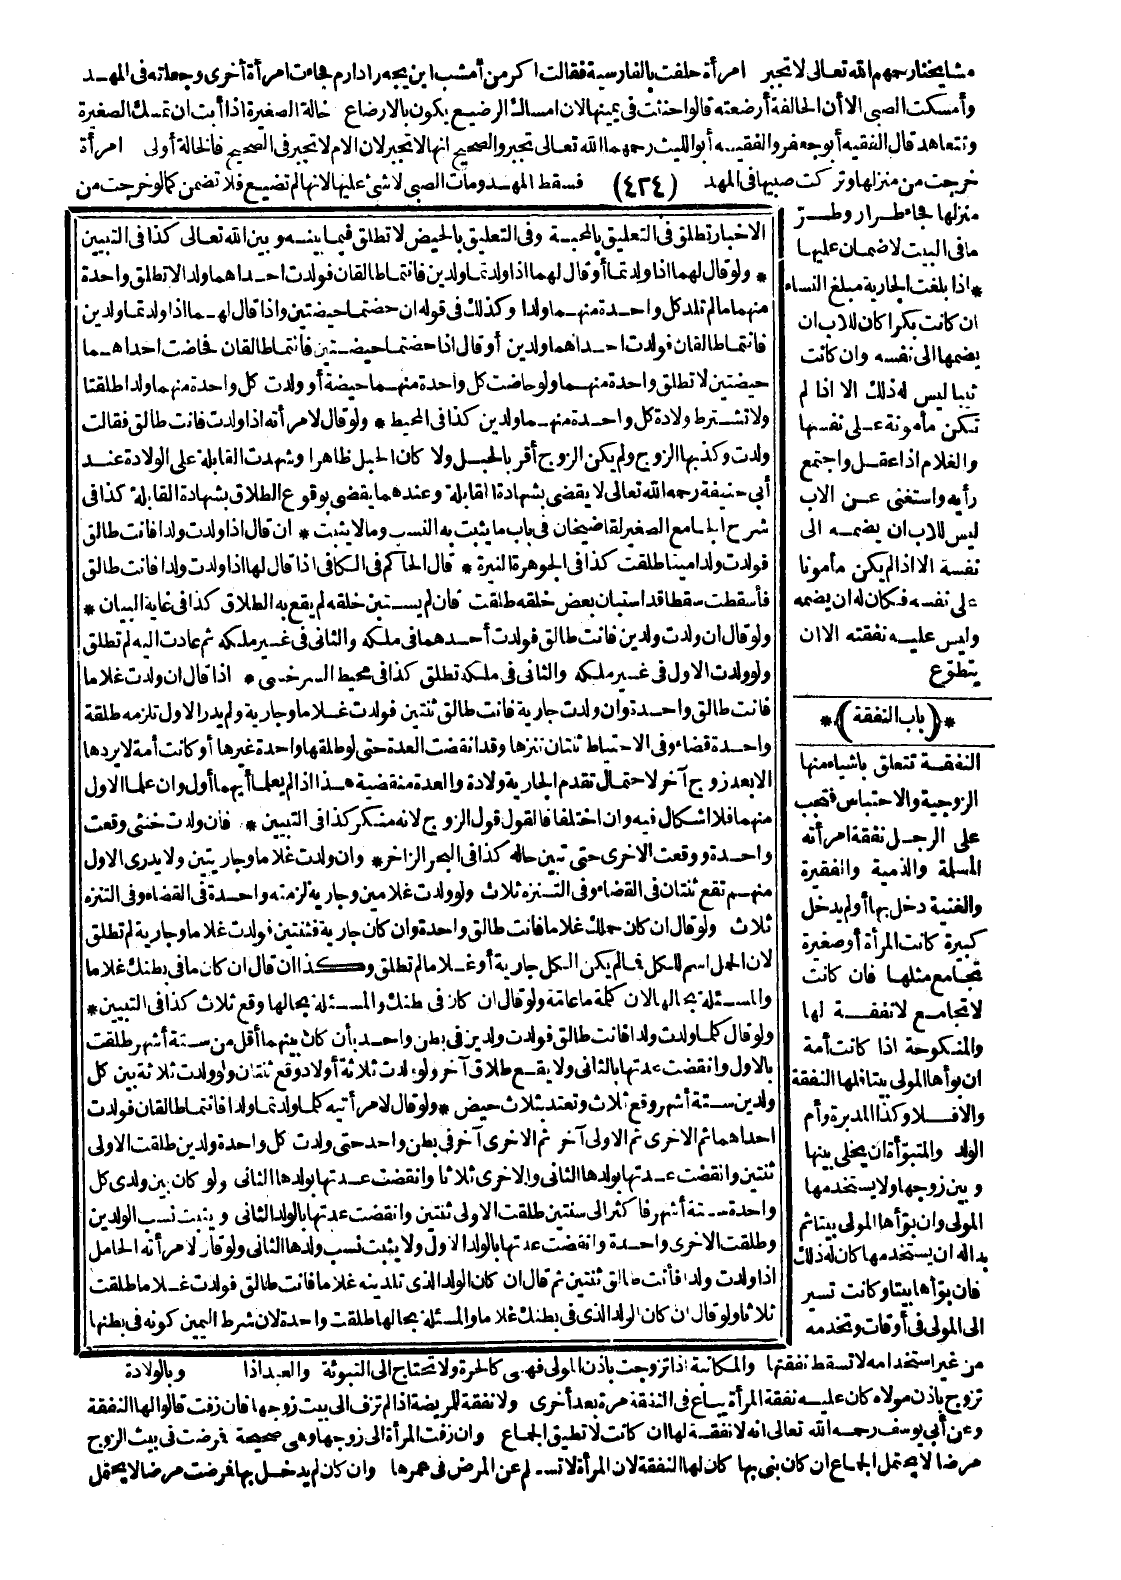 مشايخنا رحمهم الله تعالى لا تجبر امرأة حلفت بالفارسية فقالت اكر من أمشب اين بچه را دارم فجاءت امرأة أخرى وجعلته فى المهد
وأمسكت الصبى الا أن الحالفة أرضعته قالوا حنثت فى يمينها لان امساك الرضيع يكون بالارضاع خالة الصغيرة اذا أبت ان تمسك الصغيرة
وتتعاهد قال الفقيه أبو جعفر والفقيه أبو الليث رحمهما الله تعالى تجبر والصحيح انها لا تجبر لان الام لا تجبر فى الصحيح فالخالة أولى امرأة
خرجت من منزلها وتركت صبيها فى المهد (٤٢٤) فسقط المهد ومات الصبى لا شئ عليها لانها لم تضيع فلا تضمن كما لو خرجت من
منزلها فجاء طرار وطر
ما فى البيت لا ضمان عليها
* اذا بلغت الجارية مبلغ النساء
ان كانت بكرا كان للاب ان
يضمها الى نفسه وان كانت
ثيبا ليس له ذلك الا اذا لم
تكن مأمونة على نفسها
والغلام اذا عقل واجتمع
رأيه واستغنى عن الاب
ليس للاب ان يضمه الى
نفسه الا اذا لم يكن مأمونا
على نفسه فكان له ان يضمه
وليس عليه نفقته الا ان
يتطوع
*(باب النفقة)*
النفقة تتعلق باشياء منها
الزوجية والاحتباس فتجب
على الرجل نفقة امرأته
المسلمة والذمية والفقيرة
والغنية دخل بها أو لم يدخل
كبيرة كانت المرأة أو صغيرة
تجامع مثلها فان كانت
لا تجامع لا نفقة لها
والمنكوحة اذا كانت أمة
ان بوأها المولى بيتا فلها النفقة
والا فلا وكذا المدبرة وأم
الولد والمتبوأة ان يخلى بينها
وبين زوجها ولا يستخدمها
المولى وان بوأها المولى بيتا ثم
بداله ان يستخدمها كان له ذلك
فان بوأها بيتا وكانت تسير
الى المولى فى أوقات وتخدمه
الاخبار تطلق فى التعليق بالمحبة وفى التعليق بالحيض لا تطلق فيما بينه وبين الله تعالى كذا فى التبيين
* ولو قال لهما اذا ولدتما أو قال لهما اذا ولدتما ولدين فانتما طالقان فولدت احداهما ولدا لا تطلق واحدة
منهما ما لم تلد كل واحدة منهما ولدا وكذلك فى قوله ان حضتما حيضتين واذا قال لهما اذا ولدتما ولدين
فانتما طالقان فولدت احداهما ولدين أو قال اذا حضتما حيضتين فانتما طالقان فحاضت احداهما
حيضتين لا تطلق واحدة منهما ولو حاضت كل واحدة منهما حيضة أو ولدت كل واحدة منهما ولدا طلقتا
ولا تشترط ولادة كل واحدة منهما ولدين كذا فى المحيط * ولو قال لامرأته اذا ولدت فانت طالق فقالت
ولدت وكذبها الزوج ولم يكن الزوج أقر بالحبل ولا كان الحبل ظاهرا وشهدت القابلة على الولادة عند
أبى حنيفة رحمه الله تعالى لا يقضى بشهادة القابلة وعندهما يقضى بوقوع الطلاق بشهادة القابلة كذا فى
شرح الجامع الصغير لقاضيخان فى باب ما يثبت به النسب وما لا يثبت * ان قال اذا ولدت ولدا فانت طالق
فولدت ولدا ميتا طلقت كذا فى الجوهرة النيرة * قال الحاكم فى الكافى اذا قال لها اذا ولدت ولدا فانت طالق
فأسقطت سقطا قد استبان بعض خلقه طلقت فان لم يستبن خلقه لم يقع به الطلاق كذا فى غاية البيان *
ولو قال ان ولدت ولدين فانت طالق فولدت أحدهما فى ملكه والثانى فى غير ملكه ثم عادت اليه لم تطلق
ولو ولدت الاول فى غير ملكه والثانى فى ملكه تطلق كذا فى محيط السرخسى * اذا قال ان ولدت غلاما
فانت طالق واحدة وان ولدت جارية فانت طالق ثنتين فولدت غلاما وجارية ولم يدر الاول تلزمه طلقة
واحدة قضاء وفى الاحتياط ثنتان تنزها وقد انقضت العدة حتى لو طلقها واحدة غيرها أو كانت أمة لا يردها
الا بعد زوج آخر لاحتمال تقدم الجارية ولادة والعدة منقضية هذا اذا لم يعلما أيهما أول وان علما الاول
منهما فلا اشكال فيه وان اختلفا فالقول قول الزوج لانه منكر كذا فى التبيين * فان ولدت خنثى وقعت
واحدة ووقعت الاخرى حتى تبين حاله كذا فى البحر الزاخر * وان ولدت غلاما وجاريتين ولا يدرى الاول
منهم تقع ثنتان فى القضاء وفى التنزه ثلاث ولو ولدت غلامين وجارية لزمته واحدة فى القضاء وفى التنزه
ثلاث ولو قال ان كان حملك غلاما فانت طالق واحدة وان كان جارية فثنتين فولدت غلاما وجارية لم تطلق
لان الحمل اسم للكل فما لم يكن الكل جارية أو غلاما لم تطلق وكذا ان قال ان كان ما فى بطنك غلاما
والمسئلة بحالها لان كلمة ما عامة ولو قال ان كان فى بطنك والمسئلة بحالها وقع ثلاث كذا فى التبيين *
ولو قال كلما ولدت ولدا فانت طالق فولدت ولدين فى بطن واحد بأن كان بينهما أقل من ستة أشهر طلقت
بالاول وانقضت عدتها بالثانى ولا يقع طلاق آخر ولو ولدت ثلاثة أولاد وقع ثنتان ولو ولدت ثلاثة بين كل
ولدين ستة أشهر وقع ثلاث وتعتد بثلاث حيض * ولو قال لامرأتيه كلما ولدتما ولدا فانتما طالقان فولدت
احداهما ثم الاخرى ثم الاولى آخر ثم الاخرى آخر فى بطن واحد حتى ولدت كل واحدة ولدين طلقت الاولى
ثنتين وانقضت عدتها بولدها الثانى والاخرى ثلاثا وانقضت عدتها بولدها الثانى ولو كان بين ولدى كل
واحدة ستة أشهر فاكثر الى سنتين طلقت الاولى ثنتين وانقضت عدتها بالولد الثانى ويثبت نسب الولدين
وطلقت الاخرى واحدة وانقضت عدتها بالولد الاول ولا يثبت نسب ولدها الثانى ولو قال لامرأته الحامل
اذا ولدت ولدا فأنت طالق ثنتين ثم قال ان كان الولد الذى تلدينه غلاما فانت طالق فولدت غلاما طلقت
ثلاثا ولو قال ان كان الولد الذى فى بطنك غلاما والمسئلة بحالها طلقت واحدة لان شرط اليمين كونه فى بطنها
من غير استخدامه لا تسقط نفقتها والمكاتبة اذا تزوجت باذن المولى فهى كالحرة ولا تحتاج الى التبوئة والعبد اذا وبالولادة
تزوج باذن مولاه كان عليه نفقة المرأة يباع فى النفقة مرة بعد أخرى ولا نفقة للمريضة اذا لم تزف الى بيت زوجها فان زفت قالوا لها النفقة
وعن أبى يوسف رحمه الله تعالى انه لا نفقة لها ان كانت لا تطيق الجماع وان زفت المرأة الى زوجها وهى صحيحة فمرضت فى بيت الزوج
مرضا لا يحتمل الجماع ان كان بنى بها كان لها النفقة لان المرأة لا تسلم عن المرض فى عمرها وان كان لم يدخل بها فمرضت مرضا لا يحتمل